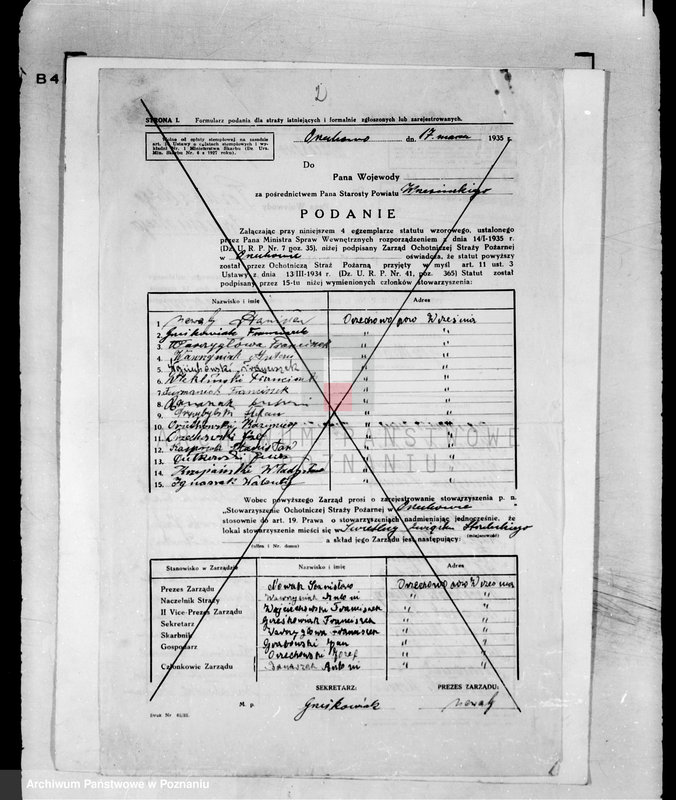 B4
2
STRONA I. Formularz podania dla straży istniejących i formalnie zgłoszonych lub zarejestrowanych.
Wolne od opłaty stemplowej na zasadzie
art. Ustawy o opłatach stemplowych i wy-
kładni Nr. 1 Ministerstwa Skarbu (Dz. Urz.
Min. Skarbu Nr. 6 z 1927 roku).
Orzechowo dn. 17 marca 1935 r.
Do
Pana Wojewody
za pośrednictwem Pana Starosty Powiatu Wrzesińskiego
PODANIE
Załączając przy niniejszem 4 egzemplarze statutu wzorowego, ustalonego
przez Pana Ministra Spraw Wewnętrznych rozporządzeniem z dnia 14/I-1935 r.
(Dz. U. R. P. Nr. 7 poz. 35), niżej podpisany Zarząd Ochotniczej Straży Pożarnej
w Orzechowie oświadcza, że statut powyższy
został przez Ochotniczą Straż Pożarną przyjęty w myśl art. 11 ust. 3
Ustawy z dnia 13/III-1934 r. (Dz. U. R. P. Nr. 41, poz. 365) Statut został
podpisany przez 15-tu niżej wymienionych członków stowarzyszenia:
Nazwisko i imię Adres
1 Nowak Stanisław Orzechowo pow Września
2. Gniškowiak Franciszek " "
3. Wawrzygłowa Franciszek " "
4. Wawrzyniak Antoni " "
5. Wojciechowski Franciszek " "
6. Franciszek " "
7. Szymaniak Franciszek " "
8. " "
9. Przybylski Stefan " "
10. Orzechowski Kazimierz " "
11. Orzechowski Józef " "
12. Kasprzak Stanisław " "
13. Gutkowski " "
14. Władysław " "
15. Ignaszak Walenty " "
Wobec powyższego Zarząd prosi o zarejestrowanie stowarzyszenia p. n.
„Stowarzyszenie Ochotniczej Straży Pożarnej w Orzechowie "
stosownie do art. 19. Prawa o stowarzyszeniach nadmieniając jednocześnie, że
lokal stowarzyszenia mieści się w Świetlicy Związku Strzeleckiego
(miejscowość)
a skład jego Zarządu jest następujący:
(ulica i Nr. domu)
Stanowisko w Zarządzie Nazwisko i imię Adres
Prezes Zarządu Nowak Stanisław Orzechowo pow Września
Naczelnik Straży Wawrzyniak Antoni " "
II Vice-Prezes Zarządu Wojciechowski Franciszek " "
Sekretarz Gniśkowiak Franciszek " "
Skarbnik Wawrzygłowa Franciszek " "
Gospodarz Jan " "
Orzechowski Józef " "
Członkowie Zarządu Banaszak Antoni " "
SEKRETARZ: PREZES ZARZĄDU:
M. p. Gniśkowiak Nowak
Druk Nr 61/35.
ARCHIWUM PAŃSTWOWE
W POZNANIU
Archiwum Państwowe w Poznaniu